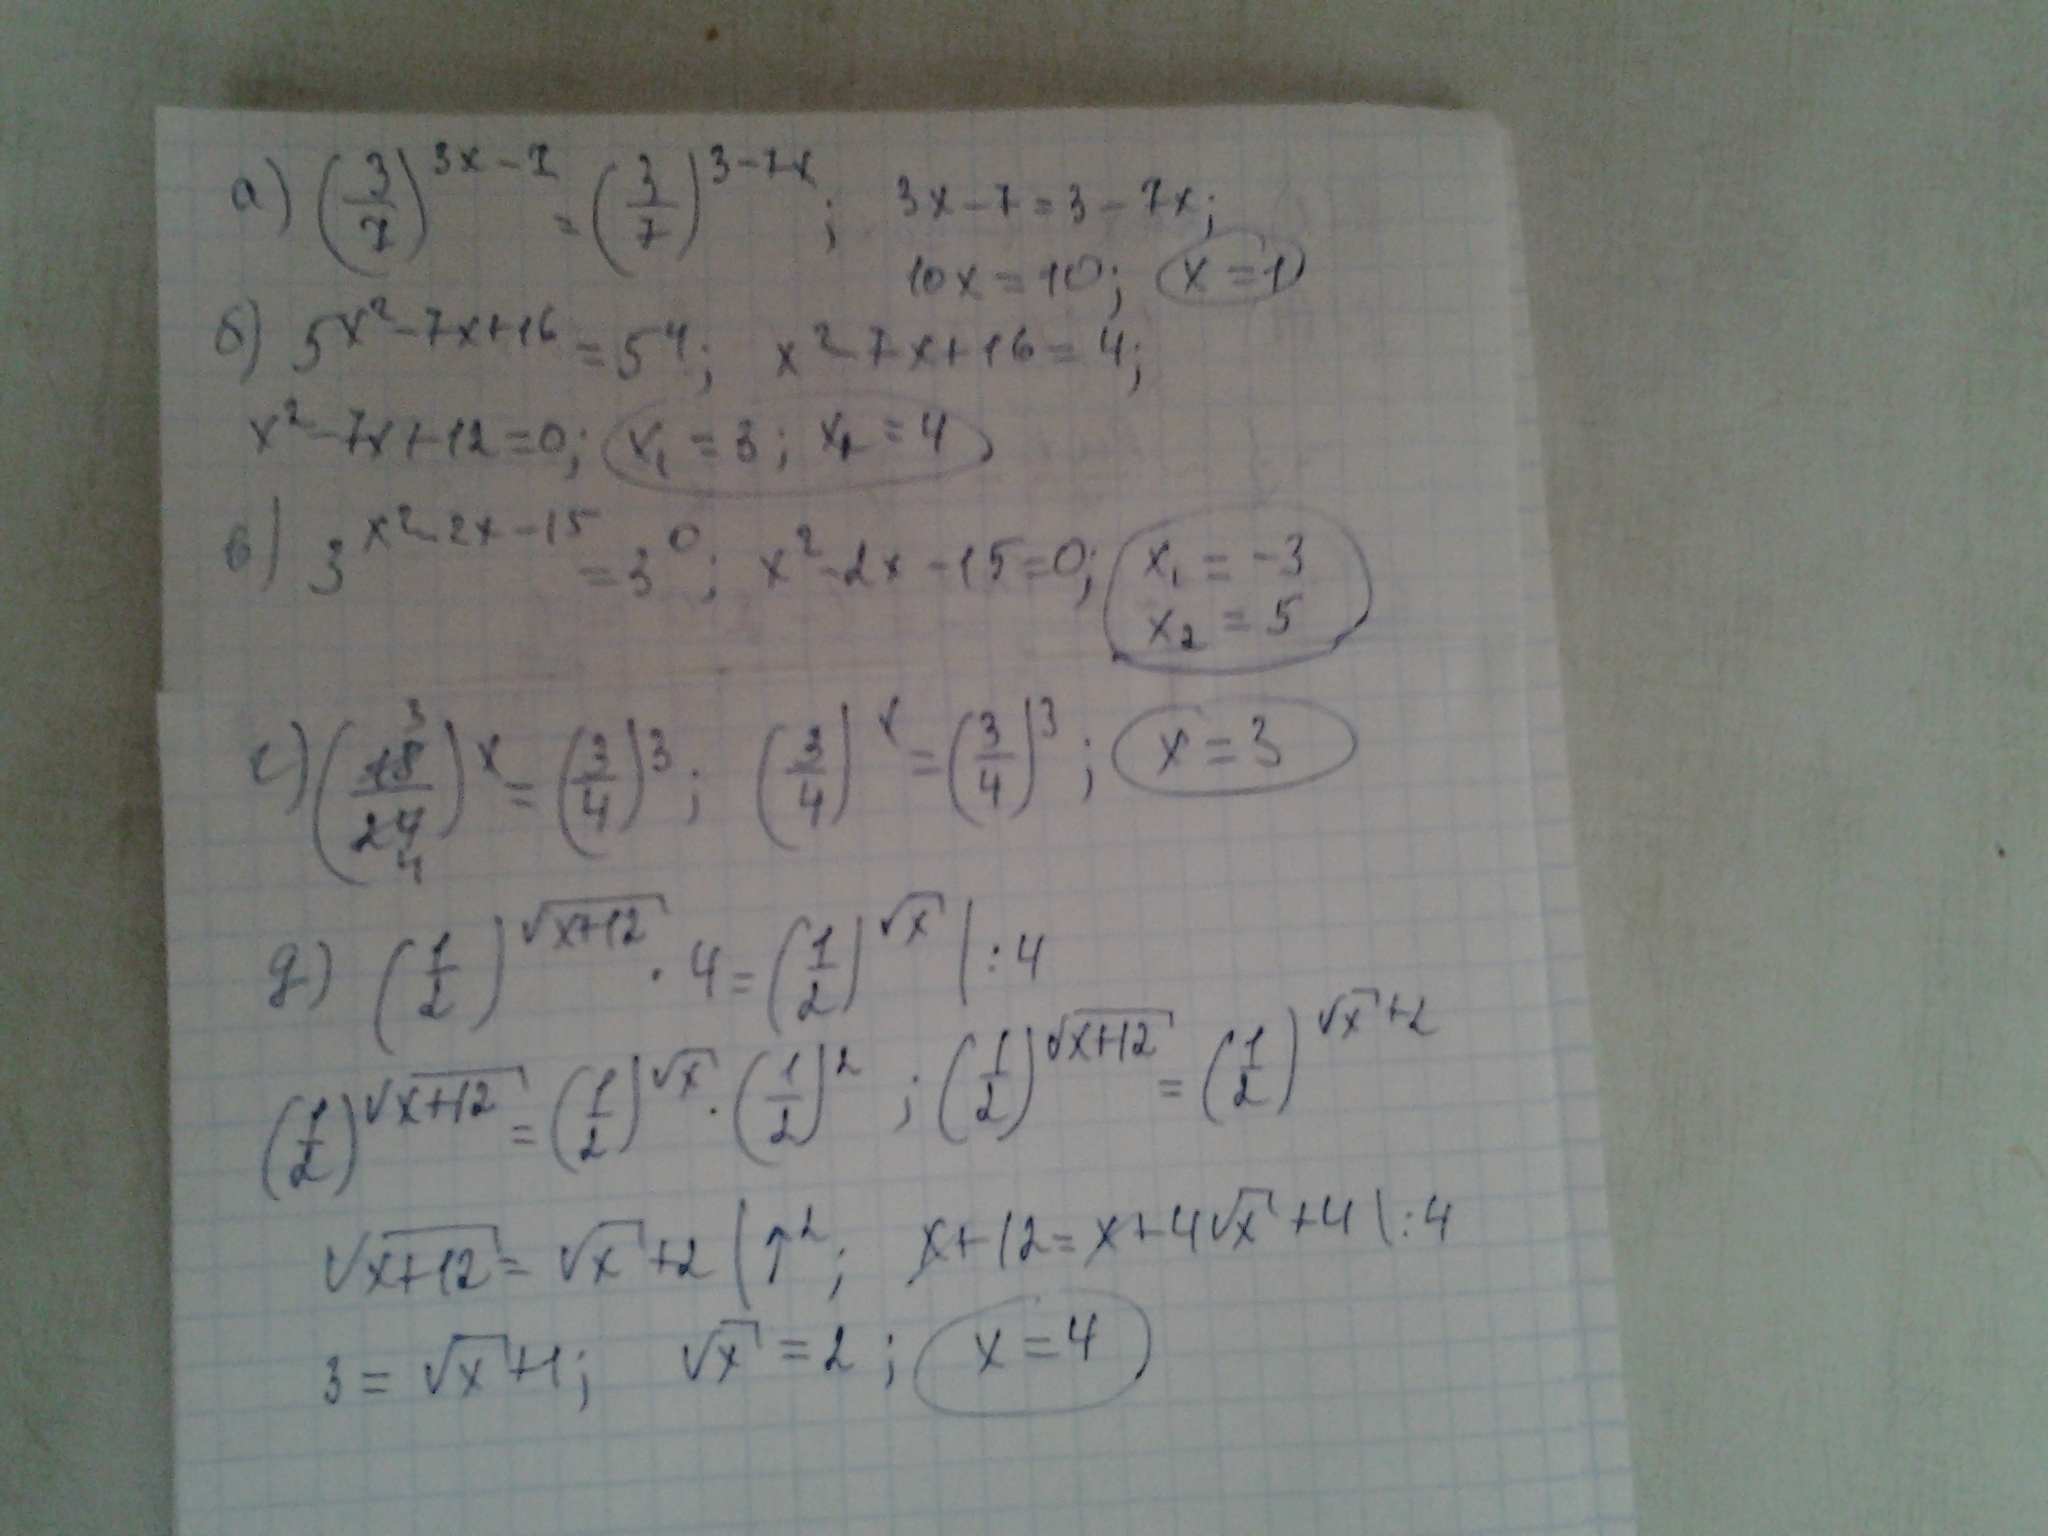 а) (3/7)^(3x-7) = (3/7)^(3-7x); 3x-7=3-7x;
10x=10; x=1
б) 5^(x²-7x+16) = 5⁴; x²-7x+16=4;
x²-7x+12=0; x₁=3; x₂=4
в) 3^(x²-2x-15) = 3⁰; x²-2x-15=0; x₁=-3
x₂=5
г) (18/24)^x = (3/4)³; (3/4)^x = (3/4)³; x=3
3
4
д) (1/2)^√(x+12) · 4 = (1/2)^√x |:4
(1/2)^√(x+12) = (1/2)^√x · (1/2)²; (1/2)^√(x+12) = (1/2)^(√x+2)
√(x+12) = √x+2 |↑²; x+12=x+4√x+4 |:4
3=√x+1; √x=2; x=4